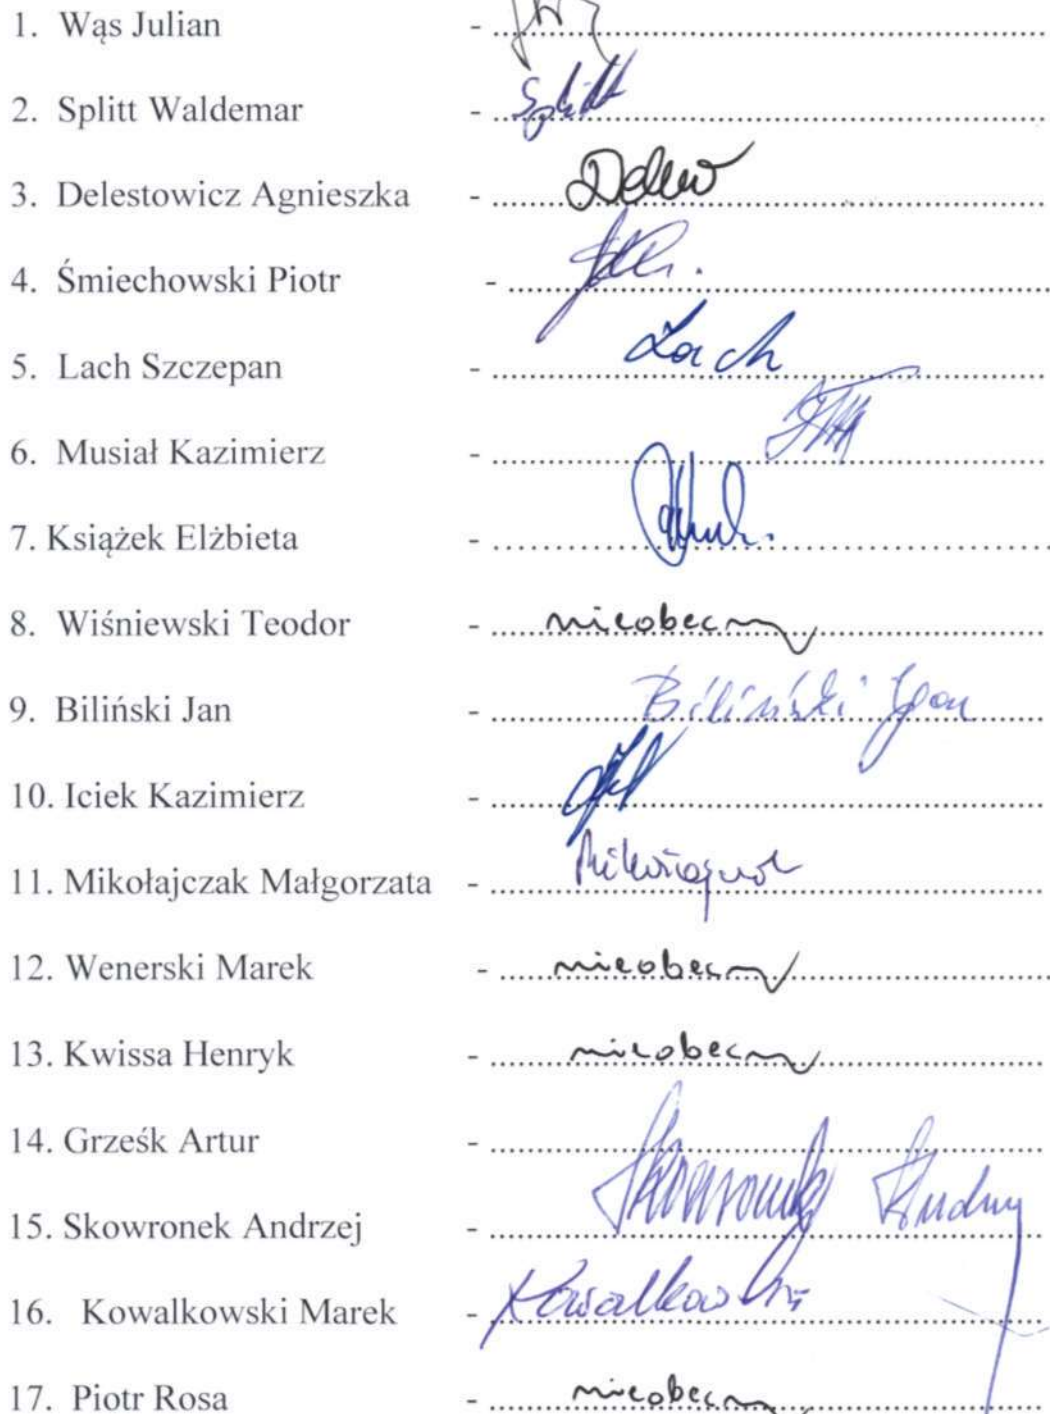 1. Wąs Julian - ..........
2. Splitt Waldemar - .......... Splitt
3. Delestowicz Agnieszka - ..........
4. Śmiechowski Piotr - ..........
5. Lach Szczepan - .......... Lach
6. Musiał Kazimierz - ..........
7. Książek Elżbieta - ..........
8. Wiśniewski Teodor - .......... nieobecny
9. Biliński Jan - .......... Biliński Jan
10. Iciek Kazimierz - ..........
11. Mikołajczak Małgorzata - ..........
12. Wenerski Marek - .......... nieobecny
13. Kwissa Henryk - .......... nieobecny
14. Grześk Artur - ..........
15. Skowronek Andrzej - .......... Skowronek Andrzej
16. Kowalkowski Marek - .......... Kowalkowski
17. Piotr Rosa - .......... nieobecny